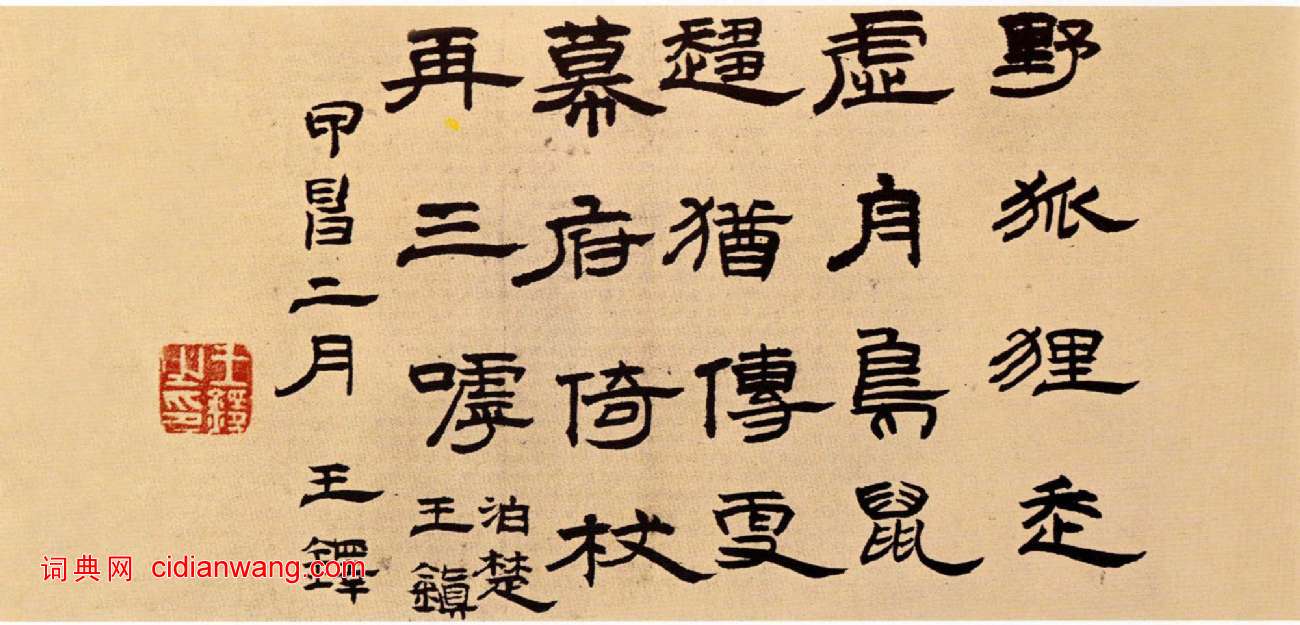 野狐狸走
虛舟鳥鼠
趨猶傳更
幕府倚杖
再三嘑
泊楚
王鎮
甲申二月 王鐸
王鐸之印
词典网 cidianwang.com